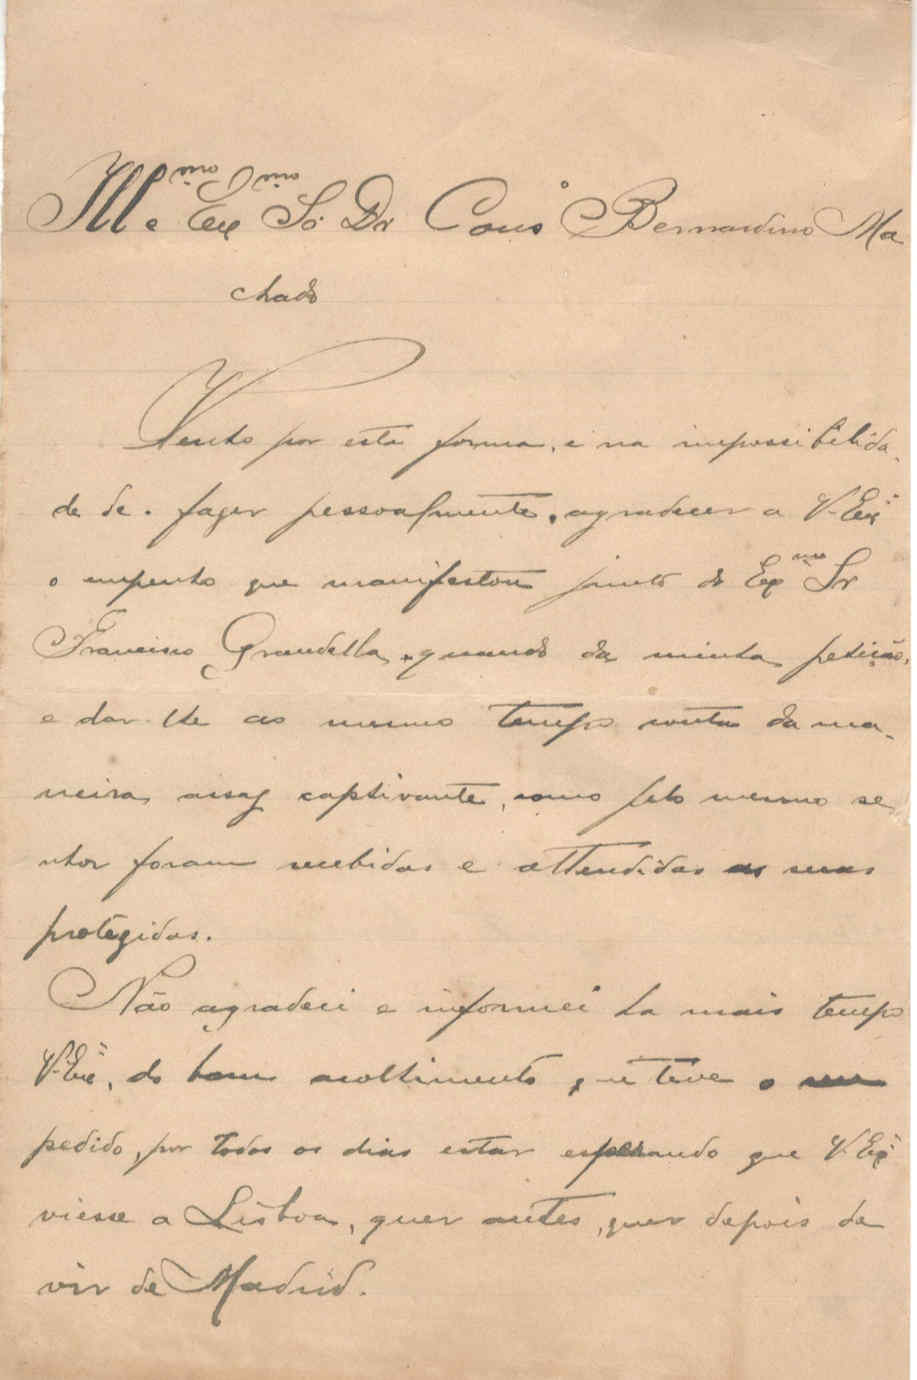 Illmo e Exmo Sr Dr Conso Bernardino Ma
chado
Venho por esta forma, e na impossibilida-
de de fazer pessoalmente, agradecer a V. Exª
o empenho que manifestou junto do Exmo Sr
Francisco Grandella, quando da minha petição,
e dar-lhe ao mesmo tempo conta da ma-
neira assaz captivante, como pelo mesmo se
nhor foram recebidas e attendidas as suas
protegidas.
Não agradeci e informei ha mais tempo
V. Exª, do bom acolhimento que teve o seu
pedido, por todos os dias estar esperando que V. Exª
viesse a Lisboa, quer antes, quer depois de
vir de Madrid.